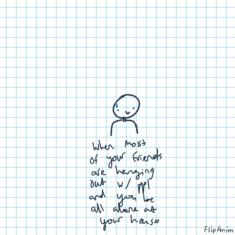 when most
of your friends
are hanging
out w/ ppl
and you be
all alone at
your house
FlipAnim